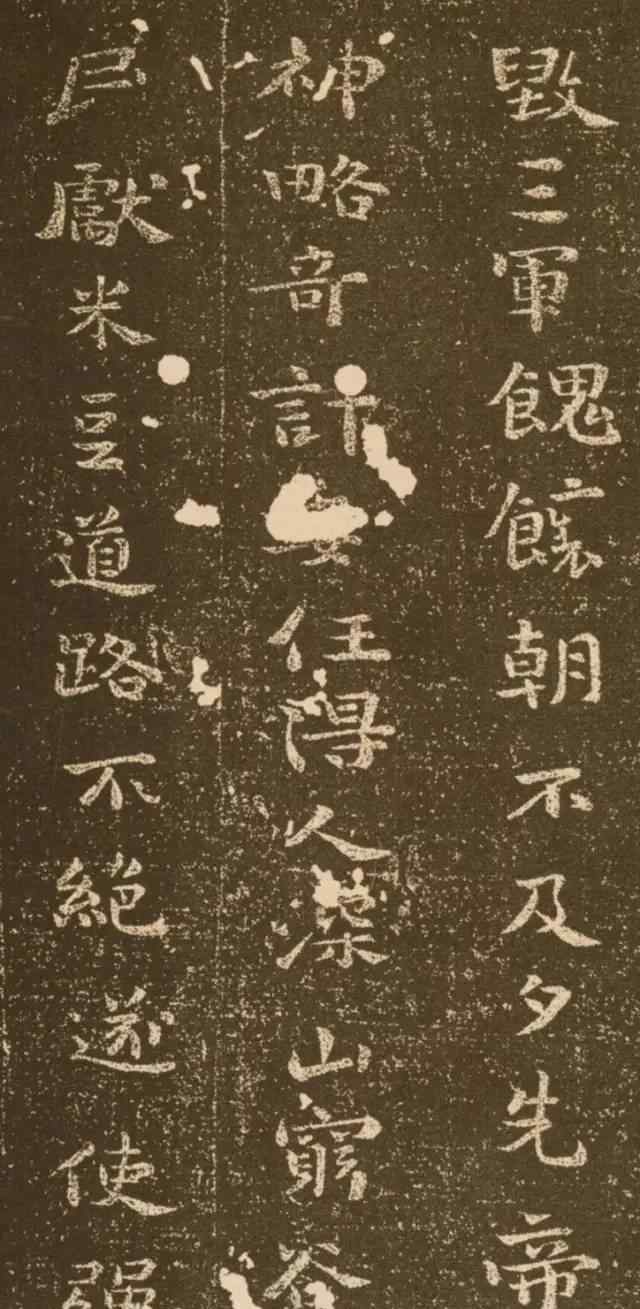 毀三軍餽饟朝不及夕先帝
神略奇計委任得人深山窮谷
民獻米豆道路不絕遂使强